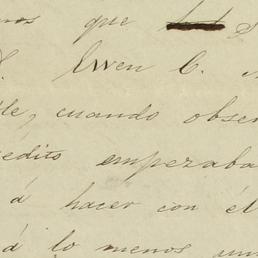 que
Owen C.
cuando obser
edito empezaba
á hacer con él
á lo menos un